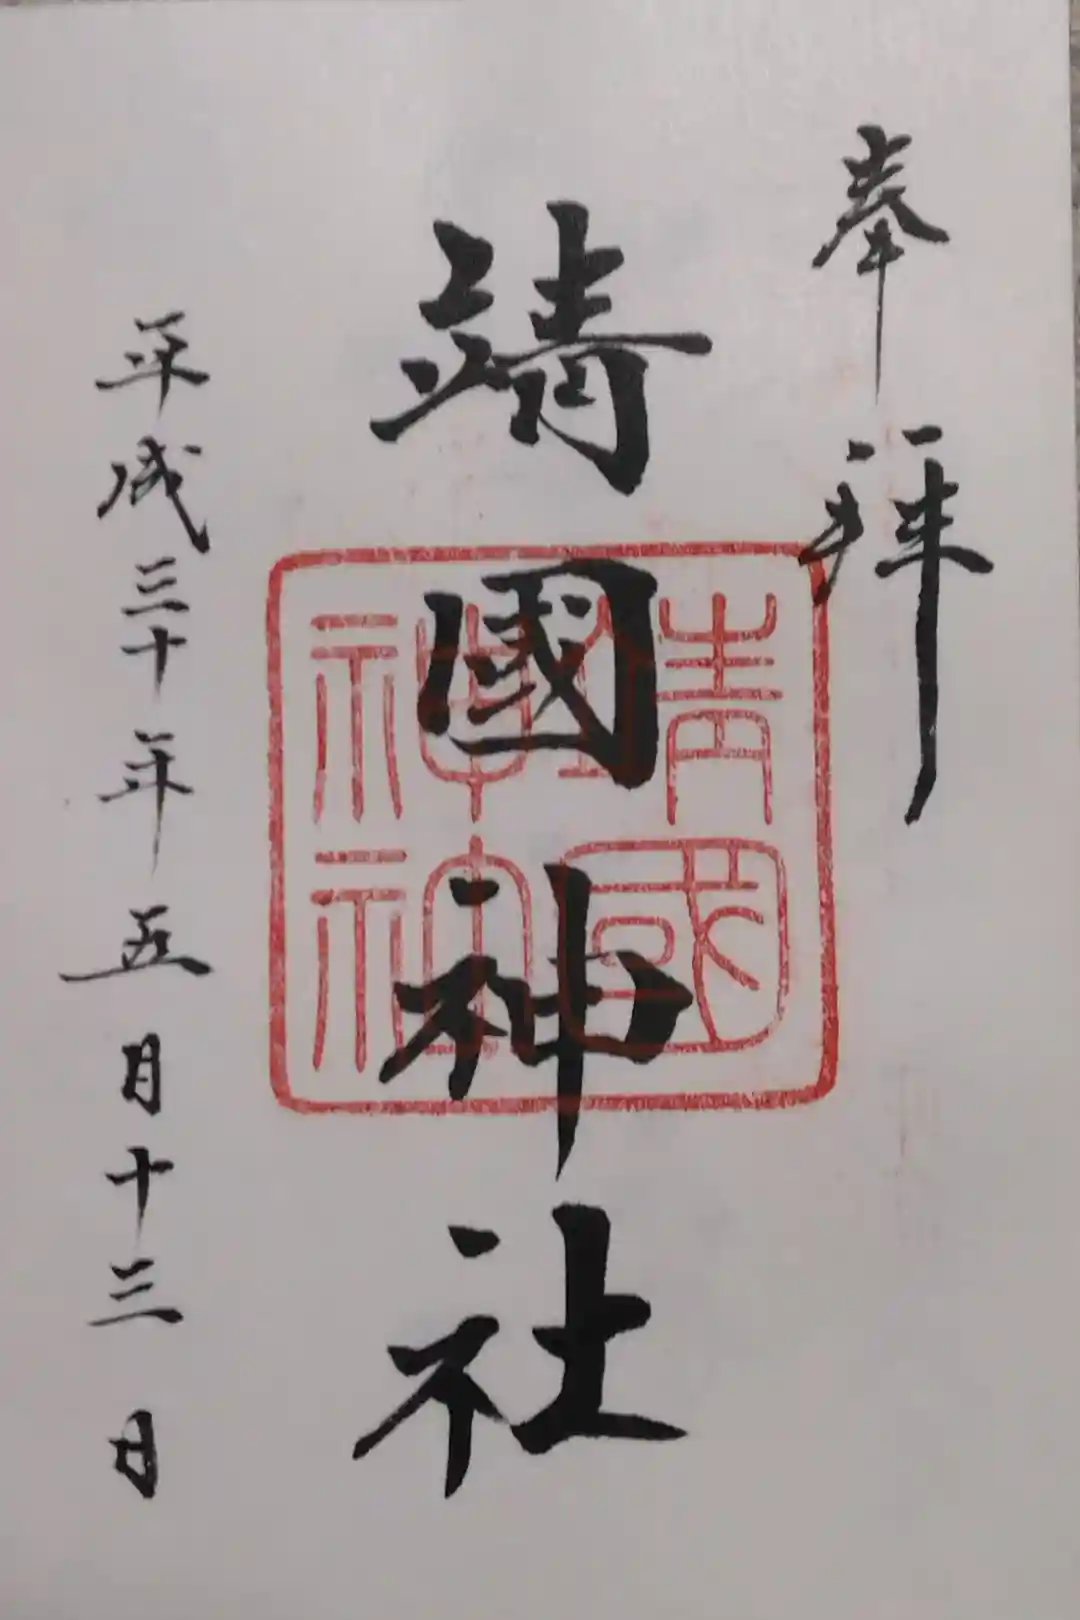 奉拝
靖國神社
靖國
神社
平成三十年五月十三日